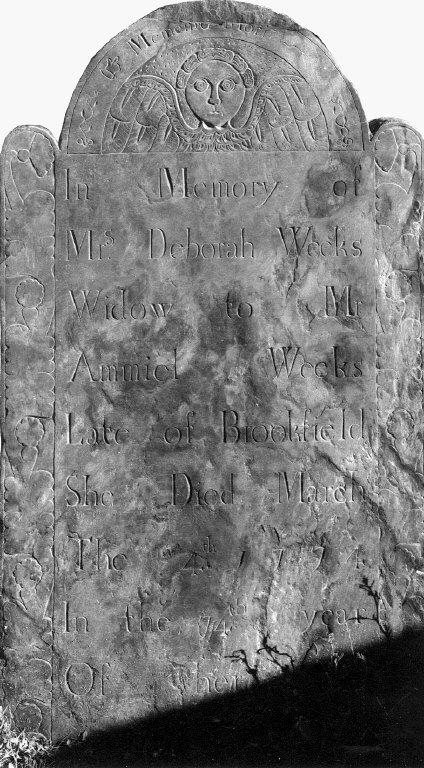 Memento mori
In Memory of
Mrs. Deborah Weeks
Widow to Mr
Ammiel Weeks
Late of Brookfield
She Died March
The 4th 1774
In the 74th year
Of her